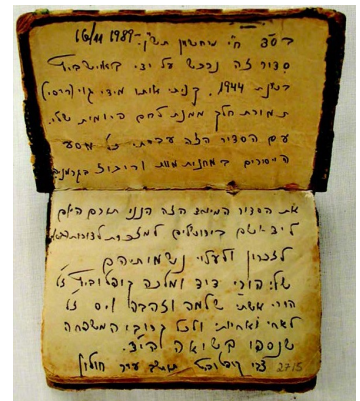 בס"ד ח"י מרחשון תש"ן - 16/11 1989
סידור זה נרכש על ידי באושביץ
בשנת 1944. קניתי אותו מידי גוי (רוסי)
תמורת חלק ממנת לחם היומית שלי.
עם הסדור הזה עברתי כל מסע
היסורים במחנות מות וריכוז בגרמניה
את הסדור המיוחד הזה הנני תורם היום
ליד-ושם בירושלים למזכרת לדורות הבאים
לזכרון ולעלוי נשמותיהם
של: הורי דוד ומלכה קופלוביץ ז"ל
הורי אשתי שלמה וזהבה ז"ל
לאחי ואחיותי ולכל קרובי המשפחה
שנספו בשואה הי"ד.
צבי קופלוביץ תושב עיר חולון
2715